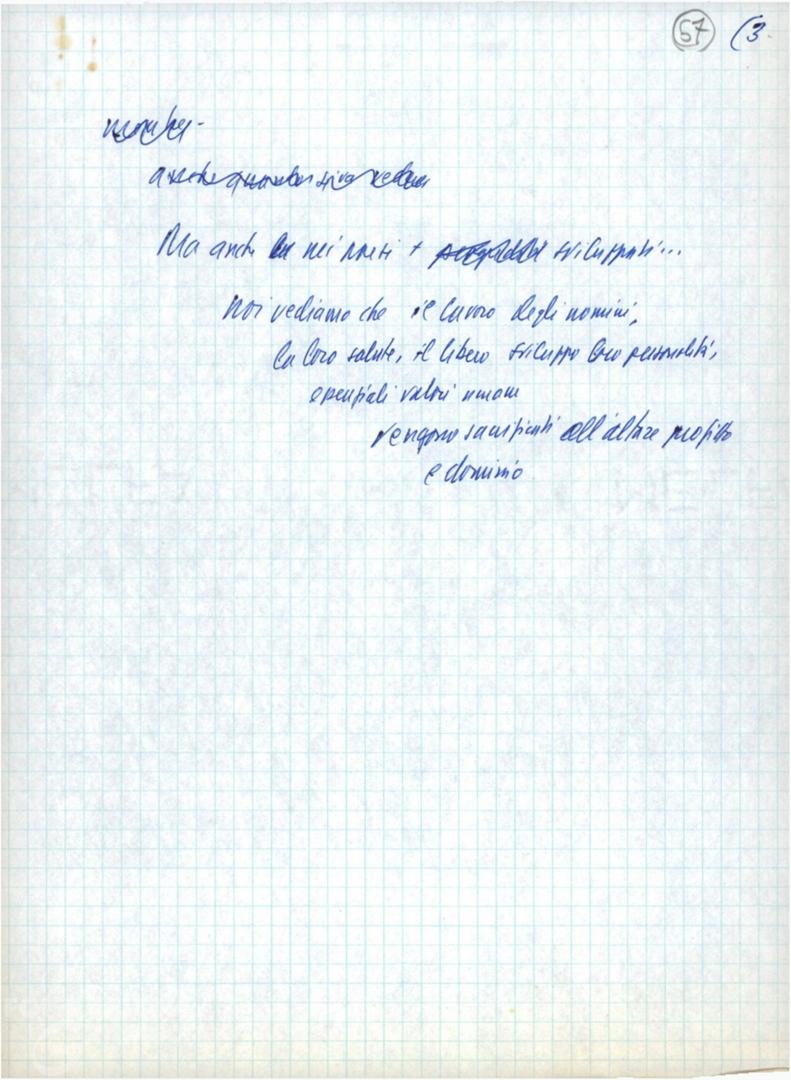 57 (3
Ma anche nei paesi + sviluppati...
noi vediamo che il lavoro degli uomini,
la loro salute, il libero sviluppo loro personalità,
essenziali valori umani
vengono sacrificati all'altare profitto
e dominio